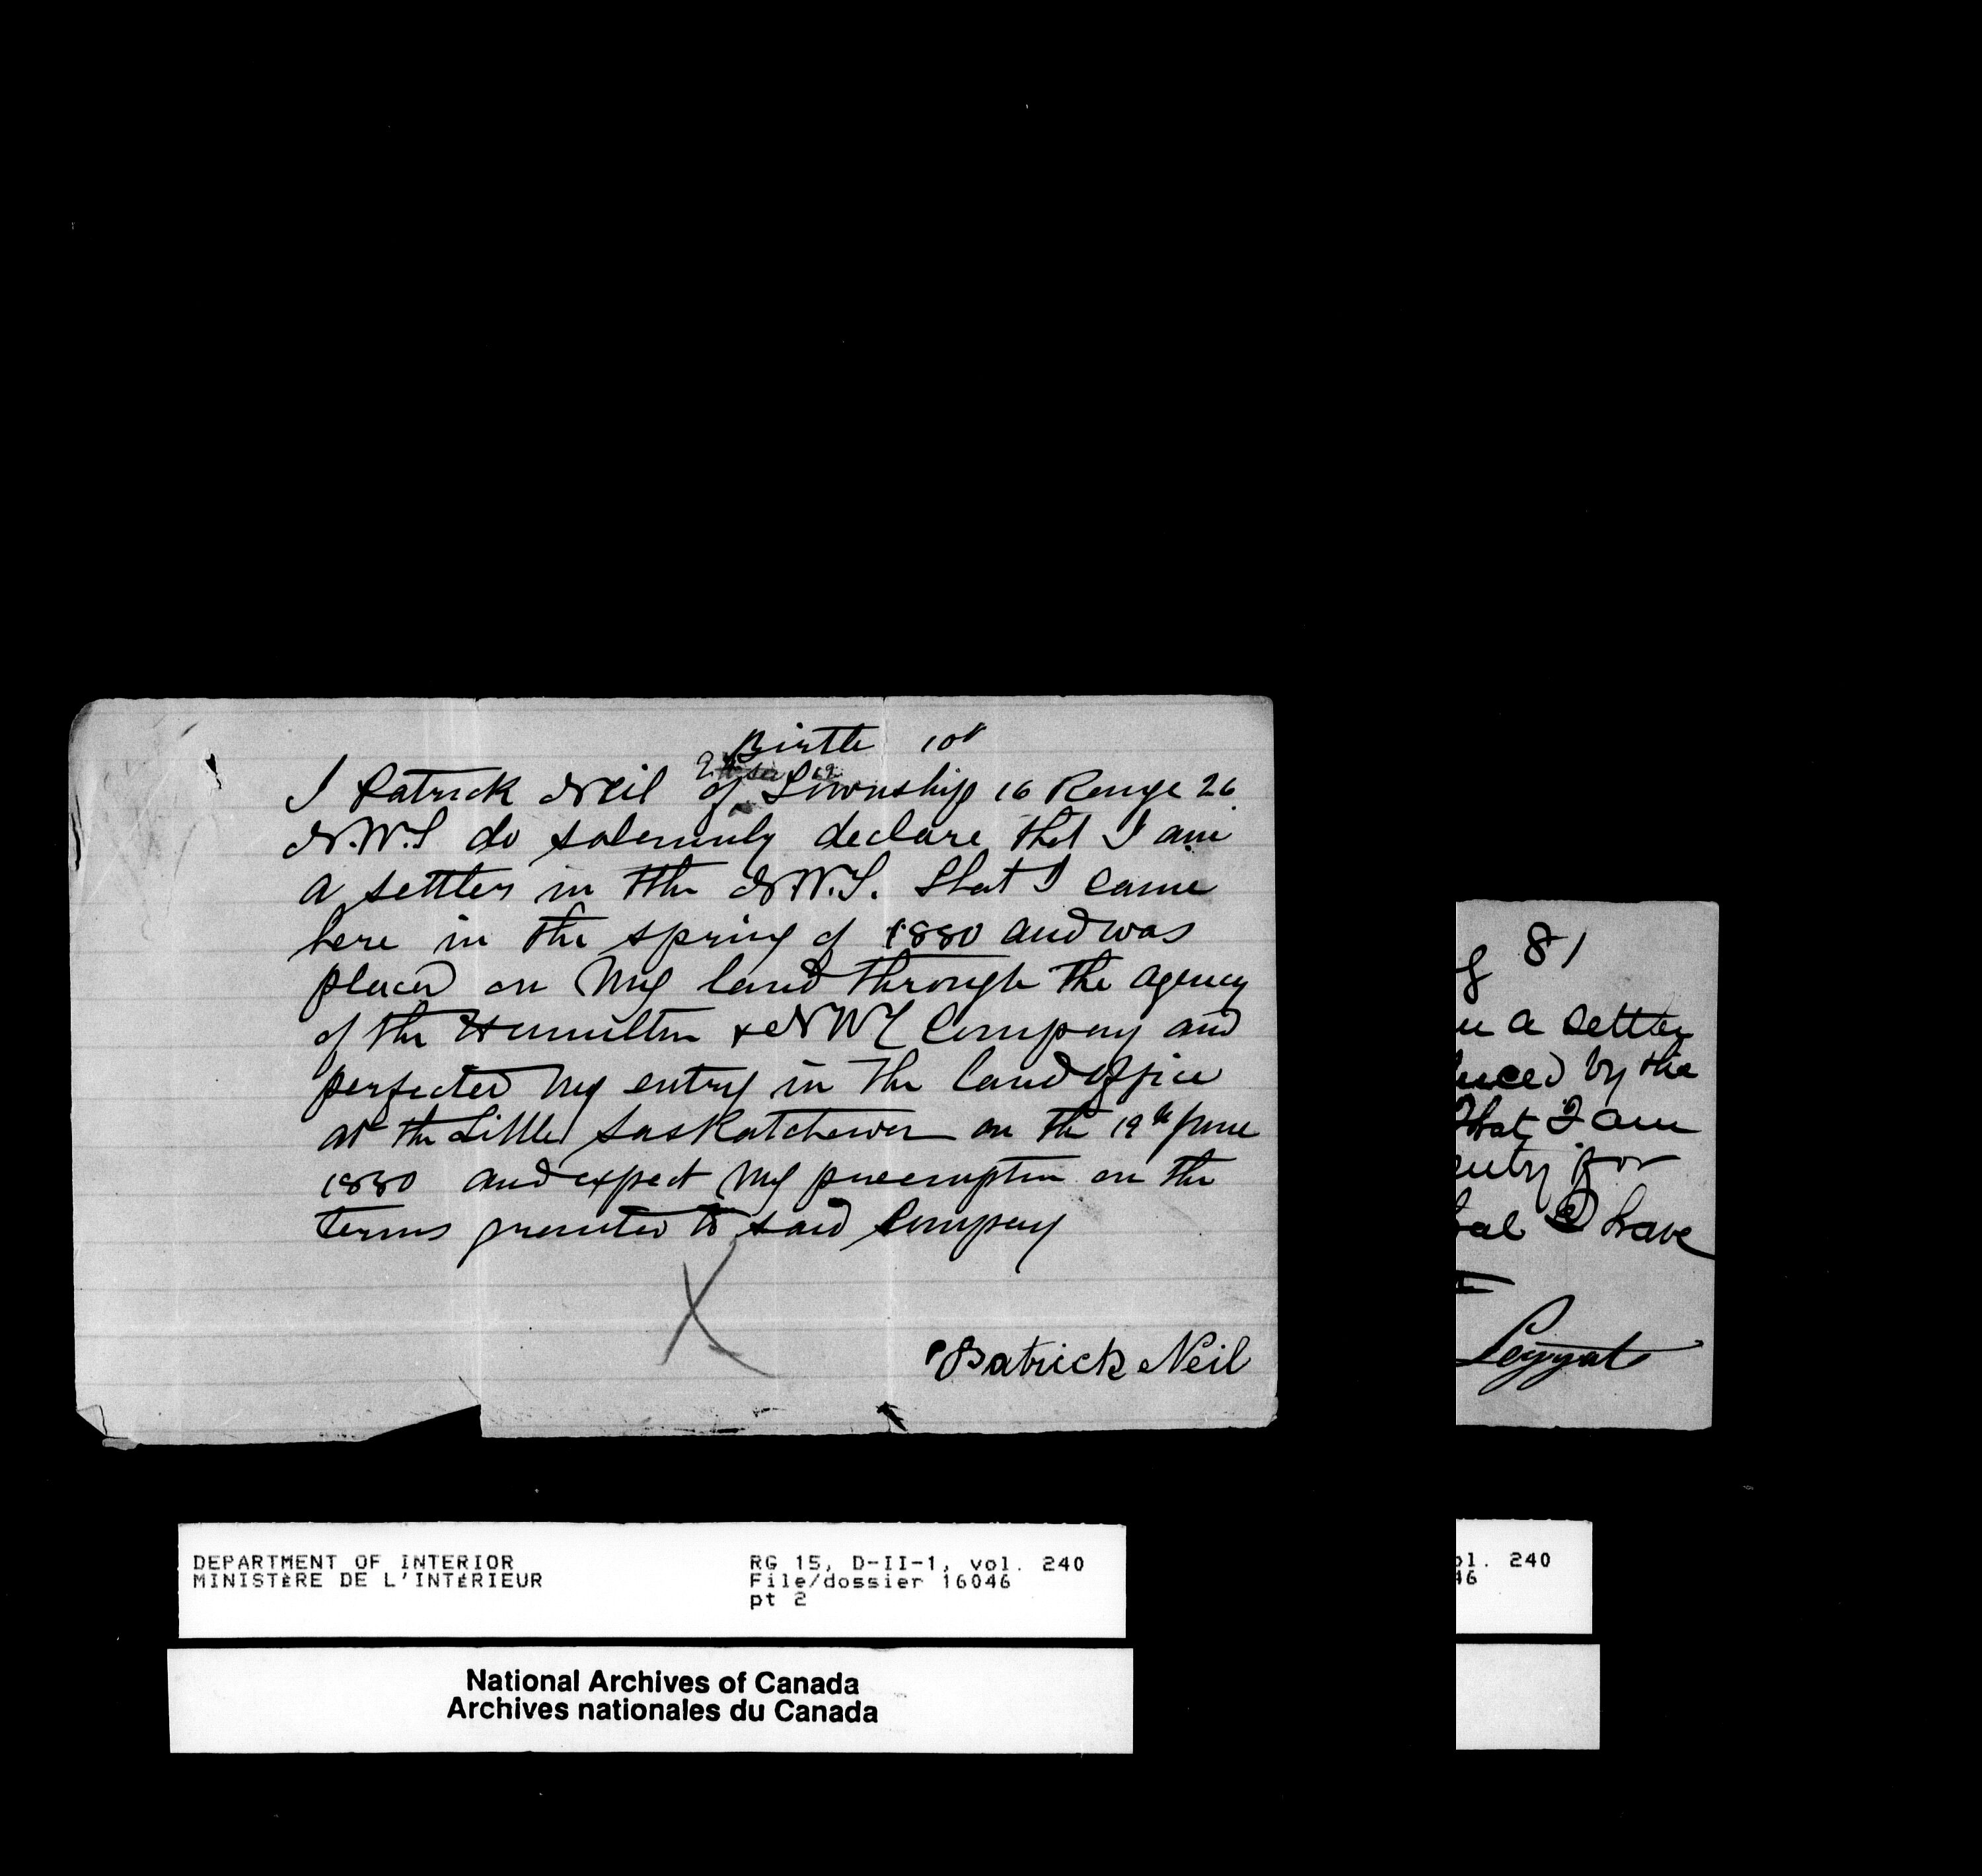 Birtle 10th
I Patrick Neil of Township 16 Range 26
N.W.T do solemnly declare that I am
a settler in the N.W.T. that I came
here in the spring of 1880 and was
placed on my land through the agency
of the Hamilton & NWT Company and
perfected my entry in the land office
at the Little Saskatchewan on the 19th June
1880 and expect my preemption on the
terms granted to said Company
X
Patrick Neil
81
a settler
by the
that I am
entry for
I have
Leggat
DEPARTMENT OF INTERIOR
MINISTÈRE DE L'INTÉRIEUR
RG 15, D-II-1, vol. 240
File/dossier 16046
pt 2
National Archives of Canada
Archives nationales du Canada
ol. 240
46